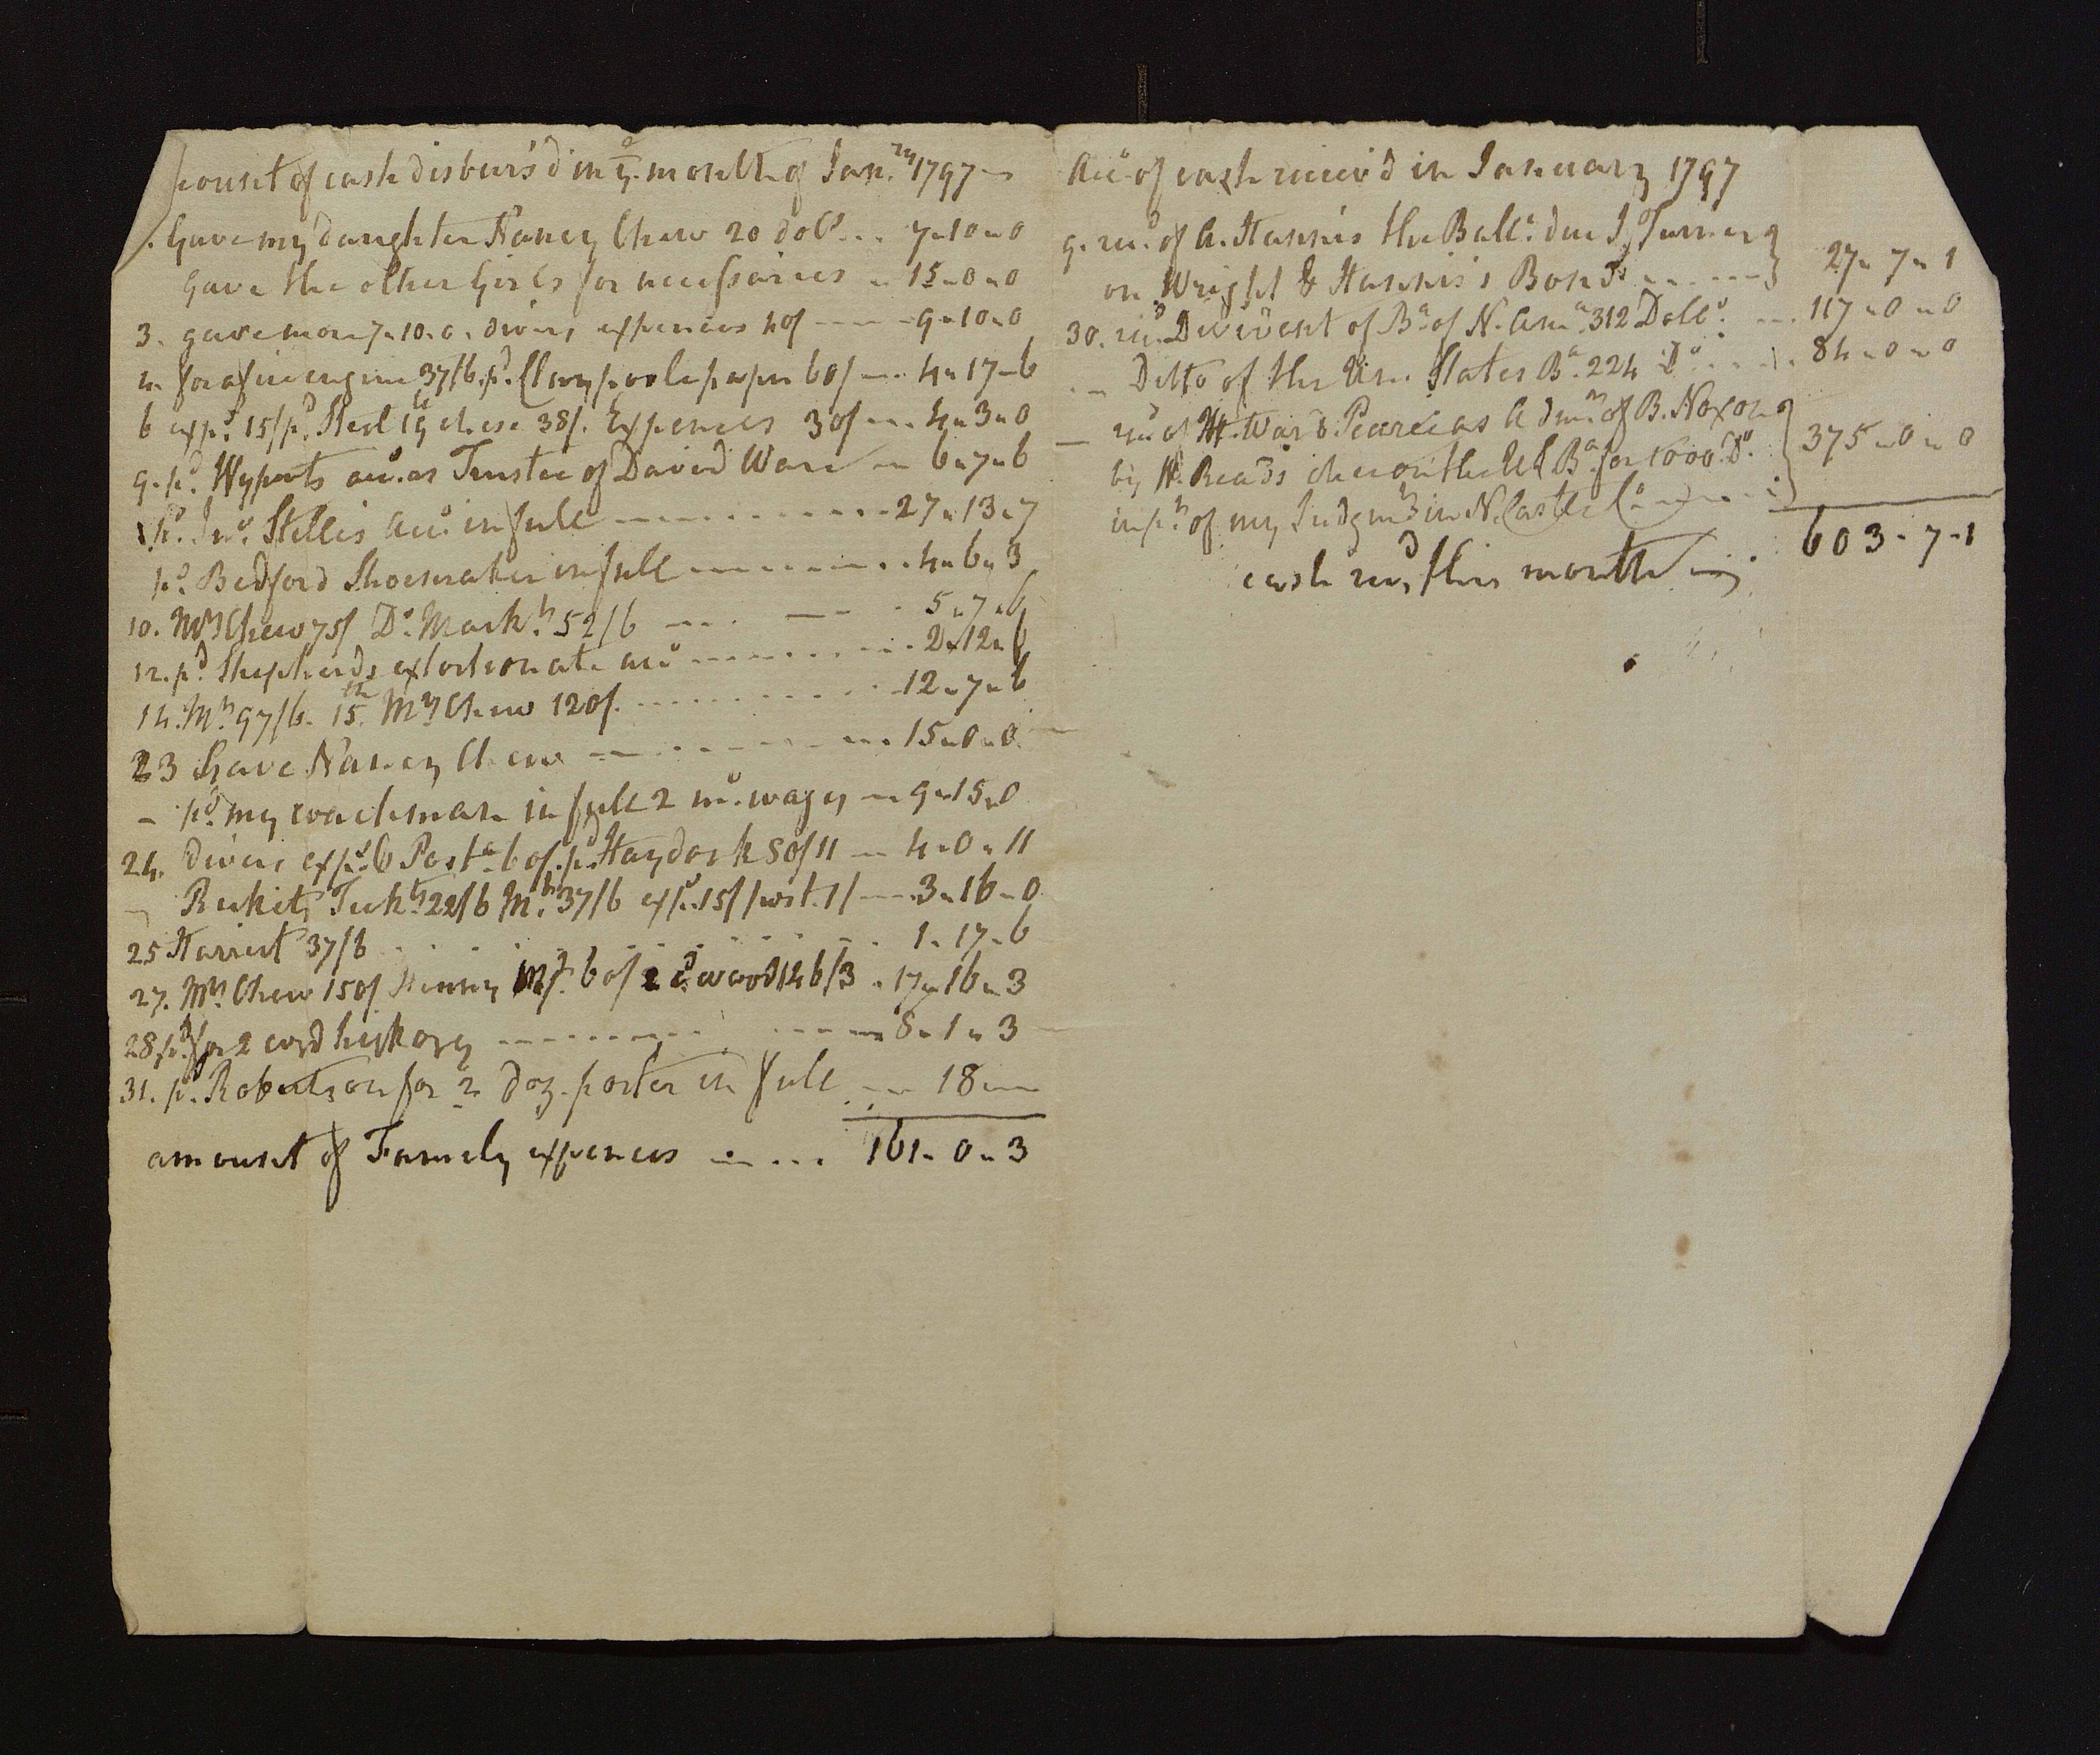 count of cash disburs'd in ye. month of Janry 1797
. Gave my daughter Nancy Chew 20 dolls... 7"10"0
Gave the other Girls for necessaries " 15"0"0
3. gave more 7"10"0. divers expences 40/ ---- 9"10"0
4. for a fire engine 37/6. pd. Claypoole paper 60/ --- 4"17"6
6 exps. 15/ pd. cheese 38/. Expences 30/ --- 4"3"0
9. pd. Wyports acct. as Trustee of David Ware " 6"7"6
pd. Jno. Stilles acct. in full ------------ 27"13"7
pd. Bedford Shoemaker in full ---------- 4"6"3
10. Mrs Chew 75/ Do. Markt. 52/6 --- . --- 5"7"6
12. pd Shepherds extortionate acct --------- 2"12"6
14. Mt. 97/6. 15th Mrs Chew 120/. ......... 12"7"6
23 Gave Nancy Chew ---------- 15"0"0
- pd. my coachman in full 2 mo. wages -- 9"15"0
24. divers exps. & Posta. 60/. pd. Haydock 80/11 -- 4"0"11
- Rickits Tickts 22/6 Mt. 37/6 exps. 15/ post. 1/ --- 3"16"0
25 Harriet 37/6 . . . . . . . . . . 1"17"6
27. Mrs Chew 150/ Henny Mt. 60/ 2 cd. wood 146/3 . 17"16"3
28 pd. for 2 cord hickory ------- ----- 8"1"3
31. pd. Robertson for 2 doz. porter in full .. -- 18--
amount of Family expences ..... 161"0"3
Acct. of cash receiv'd in January 1797
9. recd. of A. Hannis the Balla. due J. Turner
on Wright & Hannis's Bonds ....... 27"7"1
30. recd. Divident of Ba. of N. Ama. 312 Dolls. ... 117"0"0
... Ditto of the Uni. States Ba. 224 Do. ..... 84"0"0
— recd. of H. Ward Pearce as Admr. of B. Noxon
by H. Reads che. on the US Ba. for 1000 Ds.
in pt. of my Judgmts in N. Castle Co ..... 375"0"0
cash recd. this month 603-7-1